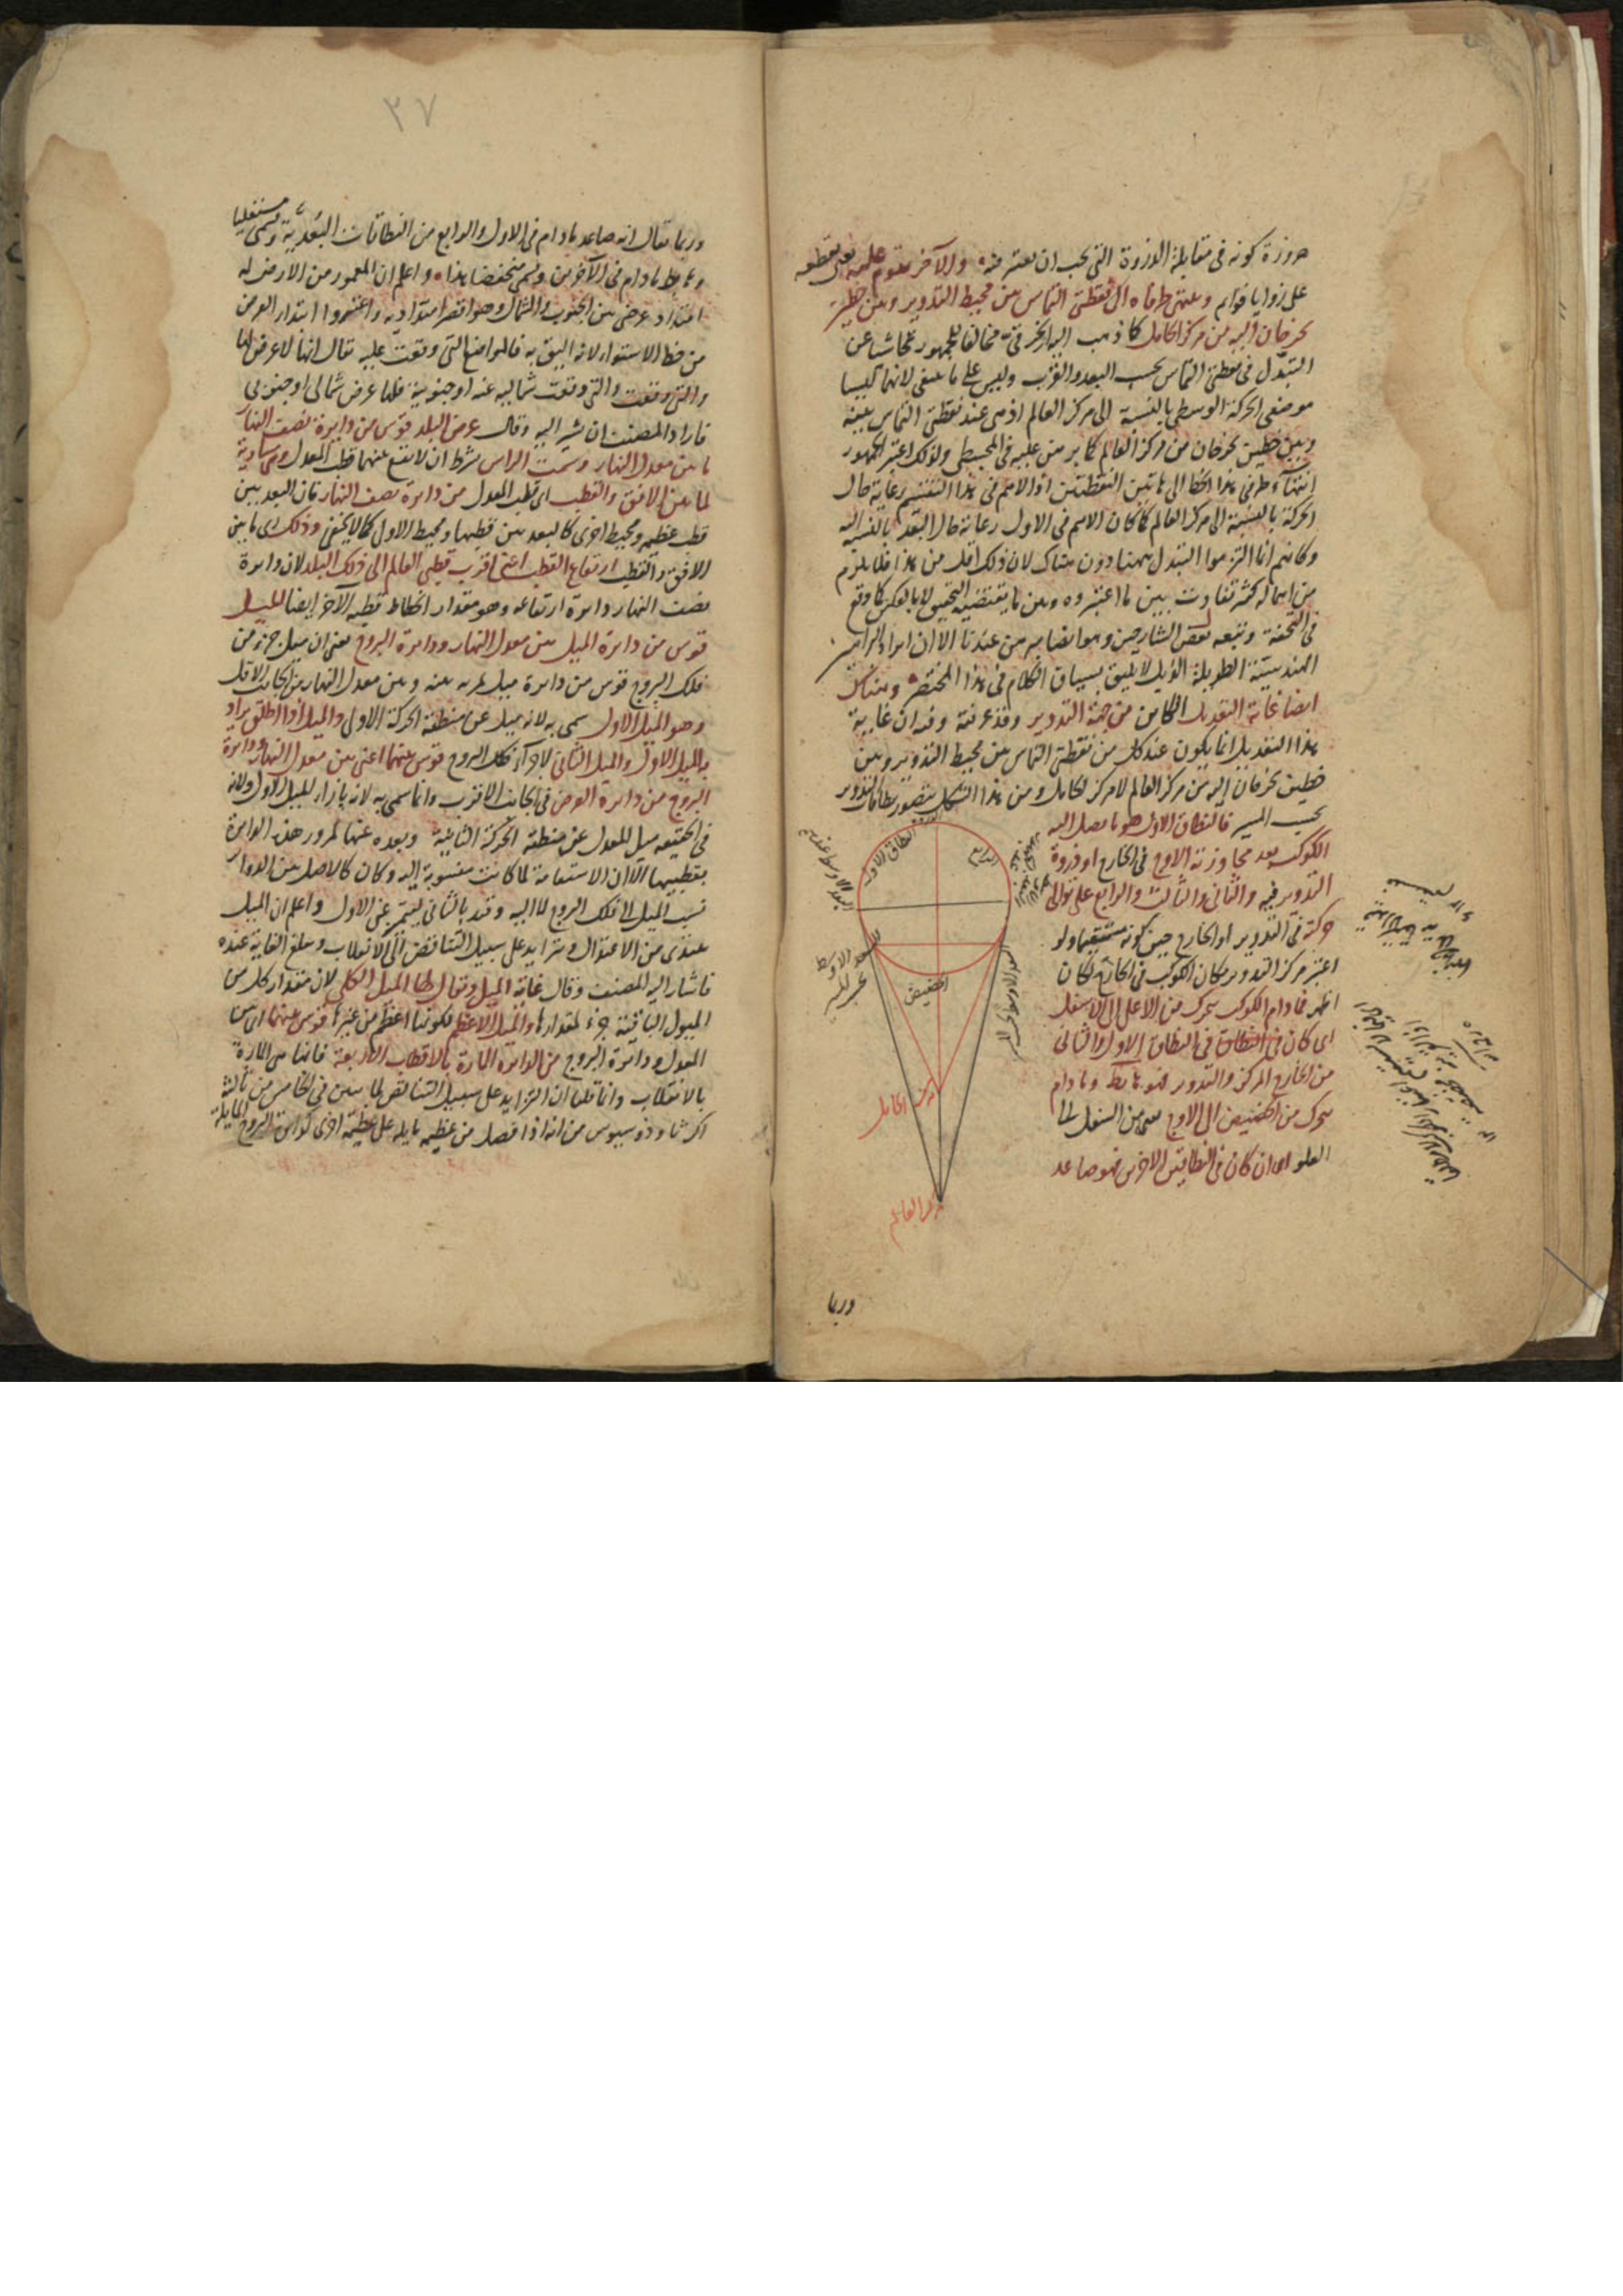 ضرورة كونه فى مقابلة الذروة التى يجب ان يعتبر منه والآخر يقوم عليه بعد يقطعه
على زوايا قوائم وينتهى طرفاه الى نقطتى التماس بين محيط التدوير وبين خطين
يخرجان اليه من مركز الحامل كما ذهب اليه الخرقى مخالفا للجمهور تحاشيا عن
التبدل فى نقطتى التماس بحسب البعد والقرب وليس على ما ينبغى لانهما ليسا
موضعى الحركة الوسطى بالنسبة الى مركز العالم اذ هى عند نقطتى التماس بينه
وبين خطين يخرجان من مركز العالم كما برهن عليه فى المجسطى ولذلك اعتبر الجمهور
انتهاء طرفى هذا الخط الى هاتين النقطتين اذ الاهم فى هذا التقسيم رعاية حال
الحركة بالنسبة الى مركز العالم كما كان الاهم فى الاول رعاية حال البعد بالنسبة اليه
وكانهم انما التزموا التبدل ههنا دون هناك لان ذلك اقل من هذا فلا يلزم
من اهماله كثير تفاوت بين ما اعتبروه وبين ما يقتضيه التحقيق لا بالعكس كما وقع
فى التحفة وتبعه بعض الشارحين وهو ايضا مبرهن عندنا الا ان ايراد البراهين
الهندسية الطويلة الذيل لا يليق بسياق الكلام فى هذا المختصر وهناك
ايضا غاية التعديل الكائن من جهة التدوير وقد عرفته وقد ان غاية
هذا التعديل انما يكون عند كل من نقطتى التماس بين محيط التدوير وبين
خطين يخرجان اليه من مركز العالم لا مركز الحامل ومن هذا الشكل يتصور نطاقات التدوير
بحسب المسير فالنطاق الاول هو ما يصل اليه
الكوكب بعد مجاوزته الاوج فى الخارج او ذروة
التدوير فيه والثانى والثالث والرابع على توالى
حركته فى التدوير او الخارج حين كونه مستقيما ولو
اعتبر مركز التدوير مكان الكوكب فى الخارج لكان
اظهر فما دام الكوكب يتحرك من الاعلى الى الاسفل
اى كان فى النطاق فى النطاق الاول والثانى
من الخارج المركز والتدوير فهو هابط وما دام
يتحرك من الحضيض الى الاوج من السفل الى
العلو اى ان كان فى النطاقين الاخرين فهو صاعد
النطاق الاول
الحضيض
مركز الحامل
مركز العالم
وربما
٣٧
وربما يقال انه صاعد ما دام فى الاول والرابع من النطاقات البعدية ويسمى مستعليا
وهابط ما دام فى الآخرين ويسمى منخفضا هذا واعلم ان المعمور من الارض له
امتداد عرضى بين الجنوب والشمال وهو اقصر امتداديه واعتبروا ابتداء العرض
من خط الاستواء لانه اليق به فالمواضع التى وقعت عليه يقال انها لا عرض لها
والتى وقعت والتى وقعت شمالية عنه او جنوبية فلها عرض شمالى او جنوبى
فاراد المصنف ان يشير اليه وقال عرض البلد قوس من دايرة نصف النهار
ما بين معدل النهار وسمت الراس بشرط ان لا يقع بينهما قطب المعدل وهى مساوية
لما بين الافق والقطب اى قطب المعدل من دايرة نصف النهار فان البعد بين
قطب عظيمة ومحيط اخرى كالبعد بين قطبها ومحيط الاولى كما لا يخفى وذلك اى ما بين
الافق والقطب ارتفاع القطب اعنى اقرب قطبى العالم الى ذلك البلد لان دايرة
نصف النهار دايرة ارتفاعه وهو مقدار انحطاط قطبه الآخر ايضا الميل
قوس من دايرة الميل بين معدل النهار ودايرة البروج يعنى ان ميل جزء من
فلك البروج قوس من دايرة ميل تمر به بينه وبين معدل النهار من الجانب الاقل
وهو الميل الاول سمى به لانه ميل عن منطقة الحركة الاولى والميل اذا اطلق يراد
به الميل الاول والميل الثانى لاجزاء فلك البروج قوس بينهما اعنى بين معدل النهار ودايرة
البروج من دايرة العرض فى الجانب الاقرب وانما سمى به لانه بازاء الميل الاول ولانه
فى الحقيقه ميل للمعدل عن منطقة الحركة الثانية وبعده عنها لمرور هذه الدايرة
بقطبيها الا ان الاستقامة لما كانت منسوبة اليه وكان كالاصل بين الدواير
نسب الميل الى فلك البروج لا اليه وقيد بالثانى ليتميز عن الاول واعلم ان الميل
يبتدى من الاعتدال ويتزايد على سبيل التناقص الى الانقلاب ويبلغ الغاية عنده
فاشار اليه المصنف وقال غاية الميل ويقال لها الميل الكلى لان مقدار كل من
الميول الباقية جزء لمقدارها والميل الاعظم لكونها اعظم من غيرها قوس بينهما اى بين
المعدل ودايرة البروج من الدايرة المارة بالاقطاب الاربعة فانها هى المارة
بالانقلاب وانما قلنا ان التزايد على سبيل التناقص لما تبين فى الخامس من ثالثة
اكر ثاوذوسيوس من انه اذا فصل من عظيمة مايلة على عظيمة اخرى كدايرة البروج المايلة